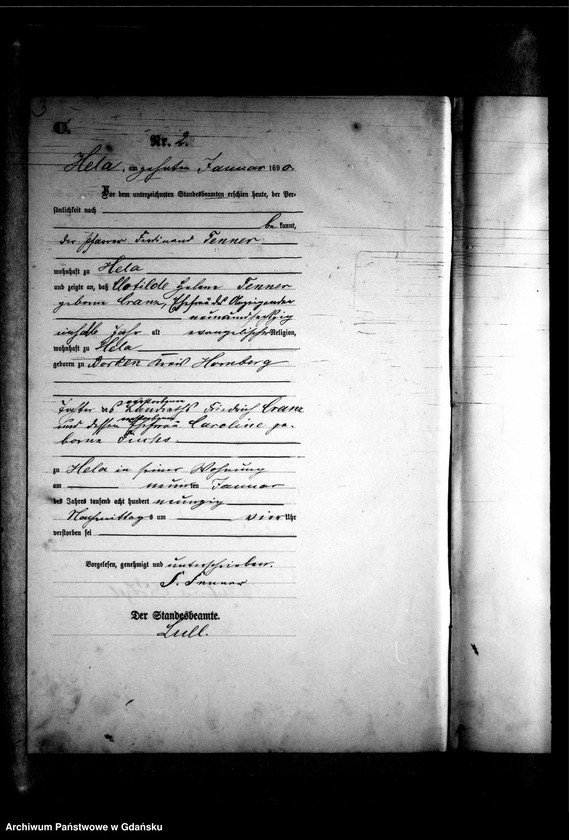 3
C.
Nr. 2.
Hela, am zehnten Januar 1890.
Vor dem unterzeichneten Standesbeamten erschien heute, der Per-
sönlichkeit nach
bekannt,
der Pfarrer Ferdinand Tenner
wohnhaft zu Hela
und zeigte an, daß Clotilde Helene Tenner
geborne Cranz, Ehefrau des Anzeigenden
neunundsechzig
einhalb Jahr alt evangelischer Religion,
wohnhaft zu Hela
geboren zu Borken Kreis Homberg
Tochter des verstorbenen Landraths Friedrich Cranz
und dessen verstorbenen Ehefrau Caroline ge-
borne Fuchs.
zu Hela in seiner Wohnung
am neunten Januar
des Jahres tausend acht hundert neunzig
Nachmittags um vier Uhr
verstorben sei
Vorgelesen, genehmigt und unterschrieben.
F. Tenner
Der Standesbeamte.
Lull.
Archiwum Państwowe w Gdańsku